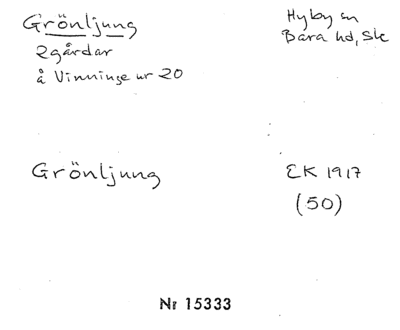 Grönljung
Hyby sn
2 gårdar
Bara hd, Sk
å Vinninge nr 20
Grönljung
EK 1917
(50)
Nr 15333